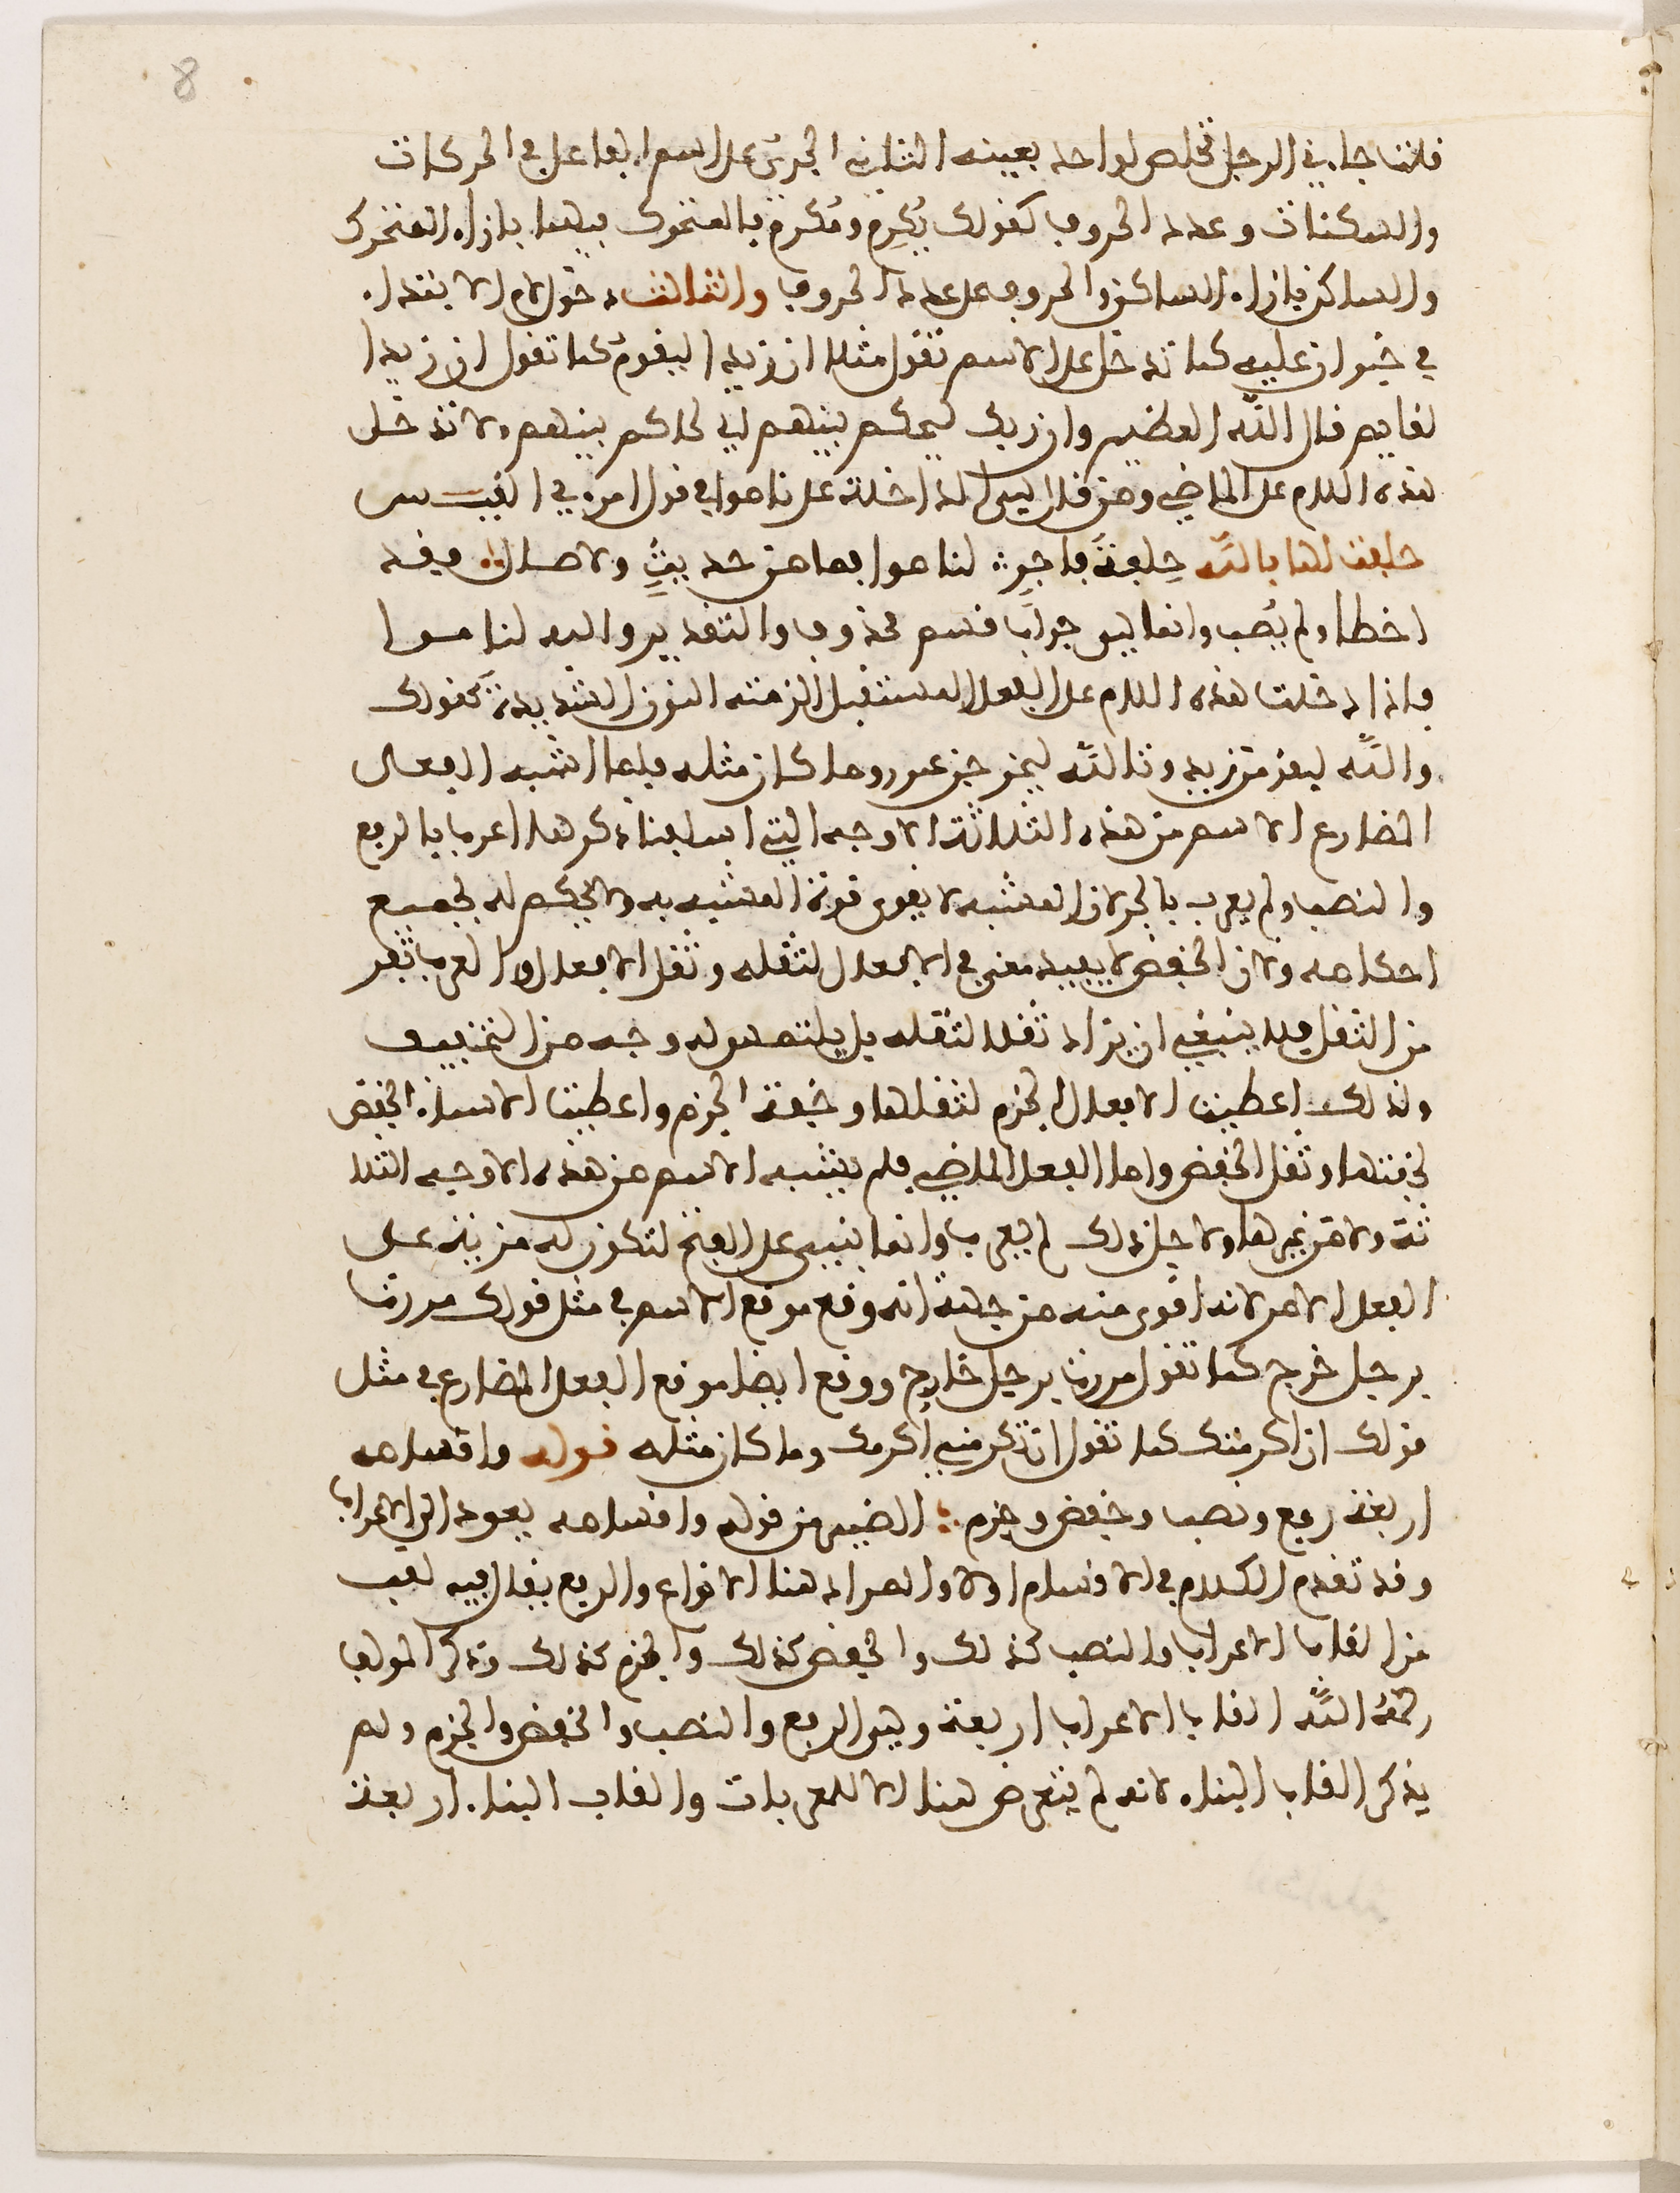 8
قلت جاءني الرجل تخلص لواحد بعينه الثاني الجري على اسم الفاعل في الحركات
والسكنات وعدد الحروف كقولك يُكرِم ومُكرِم فالمتحرك فيهما بازاء المتحرك
والساكن بازاء الساكن والحروف على عدد الحروف والثالث دخول لام الابتداء
في خبر ان عليه كما تدخل على الاسم تقول مثلا ان زيدا ليقومُ كما تقول ان زيدا
لقايم قال الله العظيم وان ربك ليحكم بينهم اي لحاكم بينهم ولا تدخل
هذه اللام على الماضي ومن قال ليس الداخلة على ناموا في قول امرء القيس
حلفت لها بالله حِلفةَ فاجرٍ لناموا فما من حديثٍ ولا صال فقد
اخطا ولم يُصب وانما ليس جوابَ قسم محذوف والتقدير والله لناموا
فاذا دخلت هذه اللام على الفعل المستقبل الزمته النون الشديدة كقولك
واللَّه ليقومن زيد وتاللَّه ليخرجن عمرو وما كان مثله فلما اشبه الفعل
المضارع الاسم من هذه الثلاثة الاوجه التي اسلفنا ذكرها اعرب بالرفع
والنصب ولم يعرب بالجر لان المشبه لا يقوى قوة المشبه به ولا يحكم له بجميع
احكامه ولان الخفض لا يفيد معنى في الافعال لثقله وثقل الافعال والعرب تفر
من الثقل فلا ينبغي ان يزاد ثقلا لثقله بل يلتمس له وجه من التخفيف
ولذلك اعطيت الافعال الجزم لثقلها وخفة الجزم واعطيت الاسماء الخفض
لخفتها وثقل الخفض واما الفعل الماضي فلم يشبه الاسم من هذه الاوجه الثلا
ثة ولا من غيرها ولاجل ذلك لم يعرب وانما بني على الفتح لتكون له مزية على
الفعل الامر لانه اقوى منه من جهة انه وقع موقع الاسم في مثل قولك مررت
برجل خرج كما تقول مررت برجل خارج ووقع ايضا موقع الفعل المضارع في مثل
قولك ان اكرمتك كما تقول ان تكرمني اكرمك وما كان مثله قوله واقسامه
اربعة رفع ونصب وخفض وجزم الضمير من قوله واقسامه يعود الى الاعراب
وقد تقدم الكلام في الاقسام اولا والمراد هنا الانواع والرفع يقال فيه لقب
من القاب الاعراب والنصب كذلك والخفض كذلك والجزم كذلك وذكر المولف
رحمهُ اللَّه القاب الاعراب اربعة وهي الرفع والنصب والخفض والجزم ولم
يذكر القاب البناء لانه لم يتعرض هنا الا للمعربات والقاب البناء اربعة